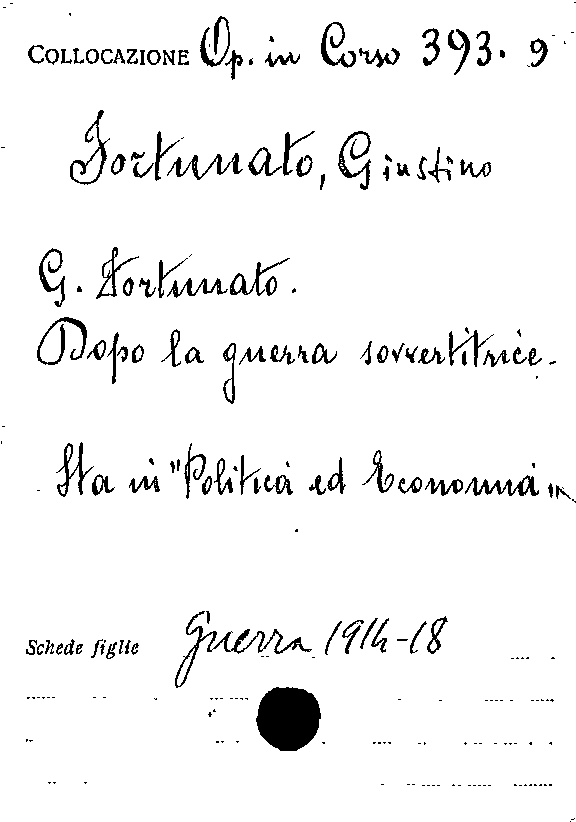 COLLOCAZIONE Op. in Corso 393. 9
Fortunato, Giustino
G. Fortunato.
Dopo la guerra sovvertitrice.
Sta in "Politica ed Economia"
Schede figlie Guerra 1914-18